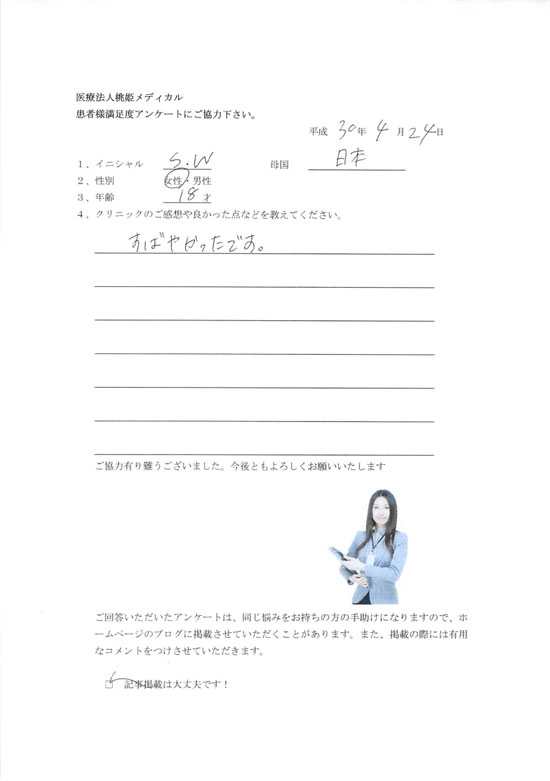 医療法人桃姫メディカル
患者様満足度アンケートにご協力下さい。
平成 30年 4 月 24日
1、イニシャル S.W 母国 日本
2、性別 女性・男性
3、年齢 18才
4、クリニックのご感想や良かった点などを教えてください。
すばやかったです。
ご協力有り難うございました。今後ともよろしくお願いいたします
ご回答いただいたアンケートは、同じ悩みをお持ちの方の手助けになりますので、ホ
ームページのブログに掲載させていただくことがあります。また、掲載の際には有用
なコメントをつけさせていただきます。
□ 記事掲載は大丈夫です！